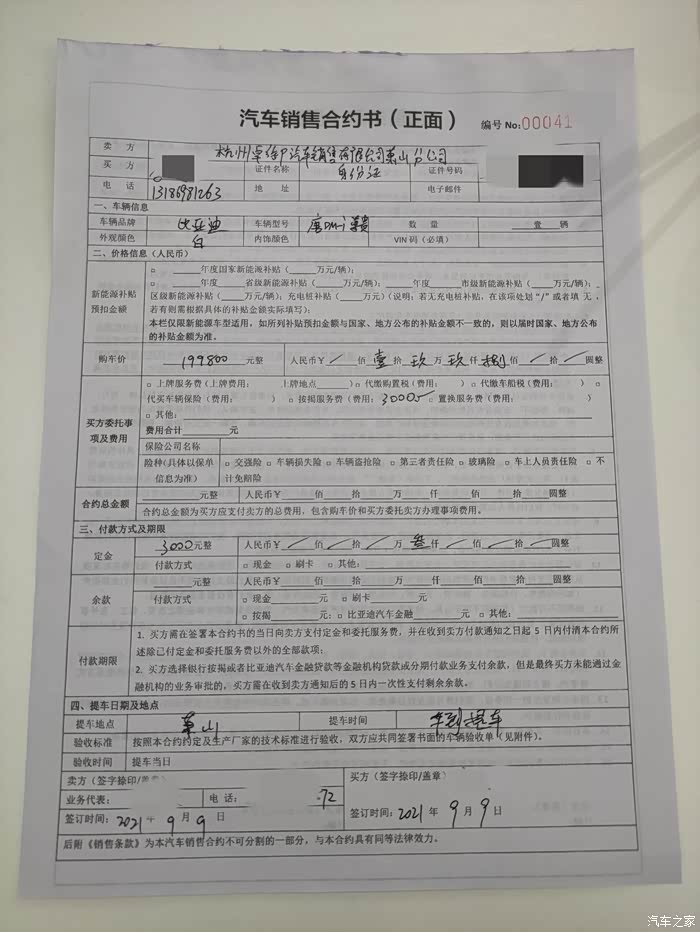 汽车销售合约书（正面） 编号 No:00041
卖 方 杭州卓伟P汽车销售有限公司萧山分公司
买 方 证件名称 身份证 证件号码
电 话 13186981263 地 址 电子邮件
一、车辆信息
车辆品牌 比亚迪 车辆型号 唐DM-i 尊贵 数 量 壹 辆
外观颜色 白 内饰颜色 VIN 码（必填）
二、价格信息（人民币）
新能源补贴预扣金额
□ ____年度国家新能源补贴（____万元/辆）；
□ ____年度____省级新能源补贴（____万元/辆）；____年度____市级新能源补贴（____万元/辆）；
区级新能源补贴（____万元/辆）；充电桩补贴（____万元）（说明：若无充电桩补贴，在该项处划 "/" 或者填 无，
若有则需根据具体的补贴金额实际填写）；
本栏仅限新能源车型适用，如所列补贴预扣金额与国家、地方公布的补贴金额不一致的，则以届时国家、地方公布
的补贴金额为准。
购车价 199800 元整 人民币￥ / 佰 壹 拾 玖 万 玖 仟 捌 佰 / 拾 / 圆整
买方委托事项及费用
□ 上牌服务费（上牌费用： 上牌地点____）□ 代缴购置税（费用： ） □ 代缴车船税（费用： ） □
代买车辆保险（费用： ） □ 按揭服务费（费用：3000 □ 置换服务费（费用： ）
□ 其他：
费用合计____元
保险公司名称
险种（具体以保单信息为准） □ 交强险 □ 车辆损失险 □ 车辆盗抢险 □ 第三者责任险 □ 玻璃险 □ 车上人员责任险 □ 不
计免赔险
合约总金额 ____元整 人民币￥____佰____拾____万____仟____佰____拾____圆整
合约总金额为买方应支付卖方的总费用，包含购车价和买方委托卖方办理事项费用。
三、付款方式及期限
定金 3000元整 人民币￥ / 佰 / 拾 / 万 叁 仟 / 佰 / 拾 / 圆整
付款方式 □ 现金 □ 刷卡 □ 其他：
余款 ____元整 人民币￥____佰____拾____万____仟____佰____拾____圆整
付款方式 □ 现金____元 □ 刷卡____元
□ 按揭____元；□ 比亚迪汽车金融____元 □ 其他：
付款期限
1. 买方需在签署本合约书的当日向卖方支付定金和委托服务费，并在收到卖方付款通知之日起 5 日内付清本合约所
述除已付定金和委托服务费以外的全部款项；
2. 买方选择银行按揭或者比亚迪汽车金融贷款等金融机构贷款或分期付款业务支付余款，但是最终买方未能通过金
融机构的业务审批的，买方需在收到卖方通知后的 5 日内一次性支付剩余余款。
四、提车日期及地点
提车地点 萧山 提车时间 车到提车
验收标准 按照本合约约定及生产厂家的技术标准进行验收，双方应共同签署书面的车辆验收单（见附件）。
验收时间 提车当日
卖方（签字捺印/盖章） 买方（签字捺印/盖章）
业务代表： 电 话： 72
签订时间：2021 年 9 月 9 日 签订时间：2021 年 9 月 9 日
后附《销售条款》为本汽车销售合约不可分割的一部分，与本合约具有同等法律效力。
汽车之家